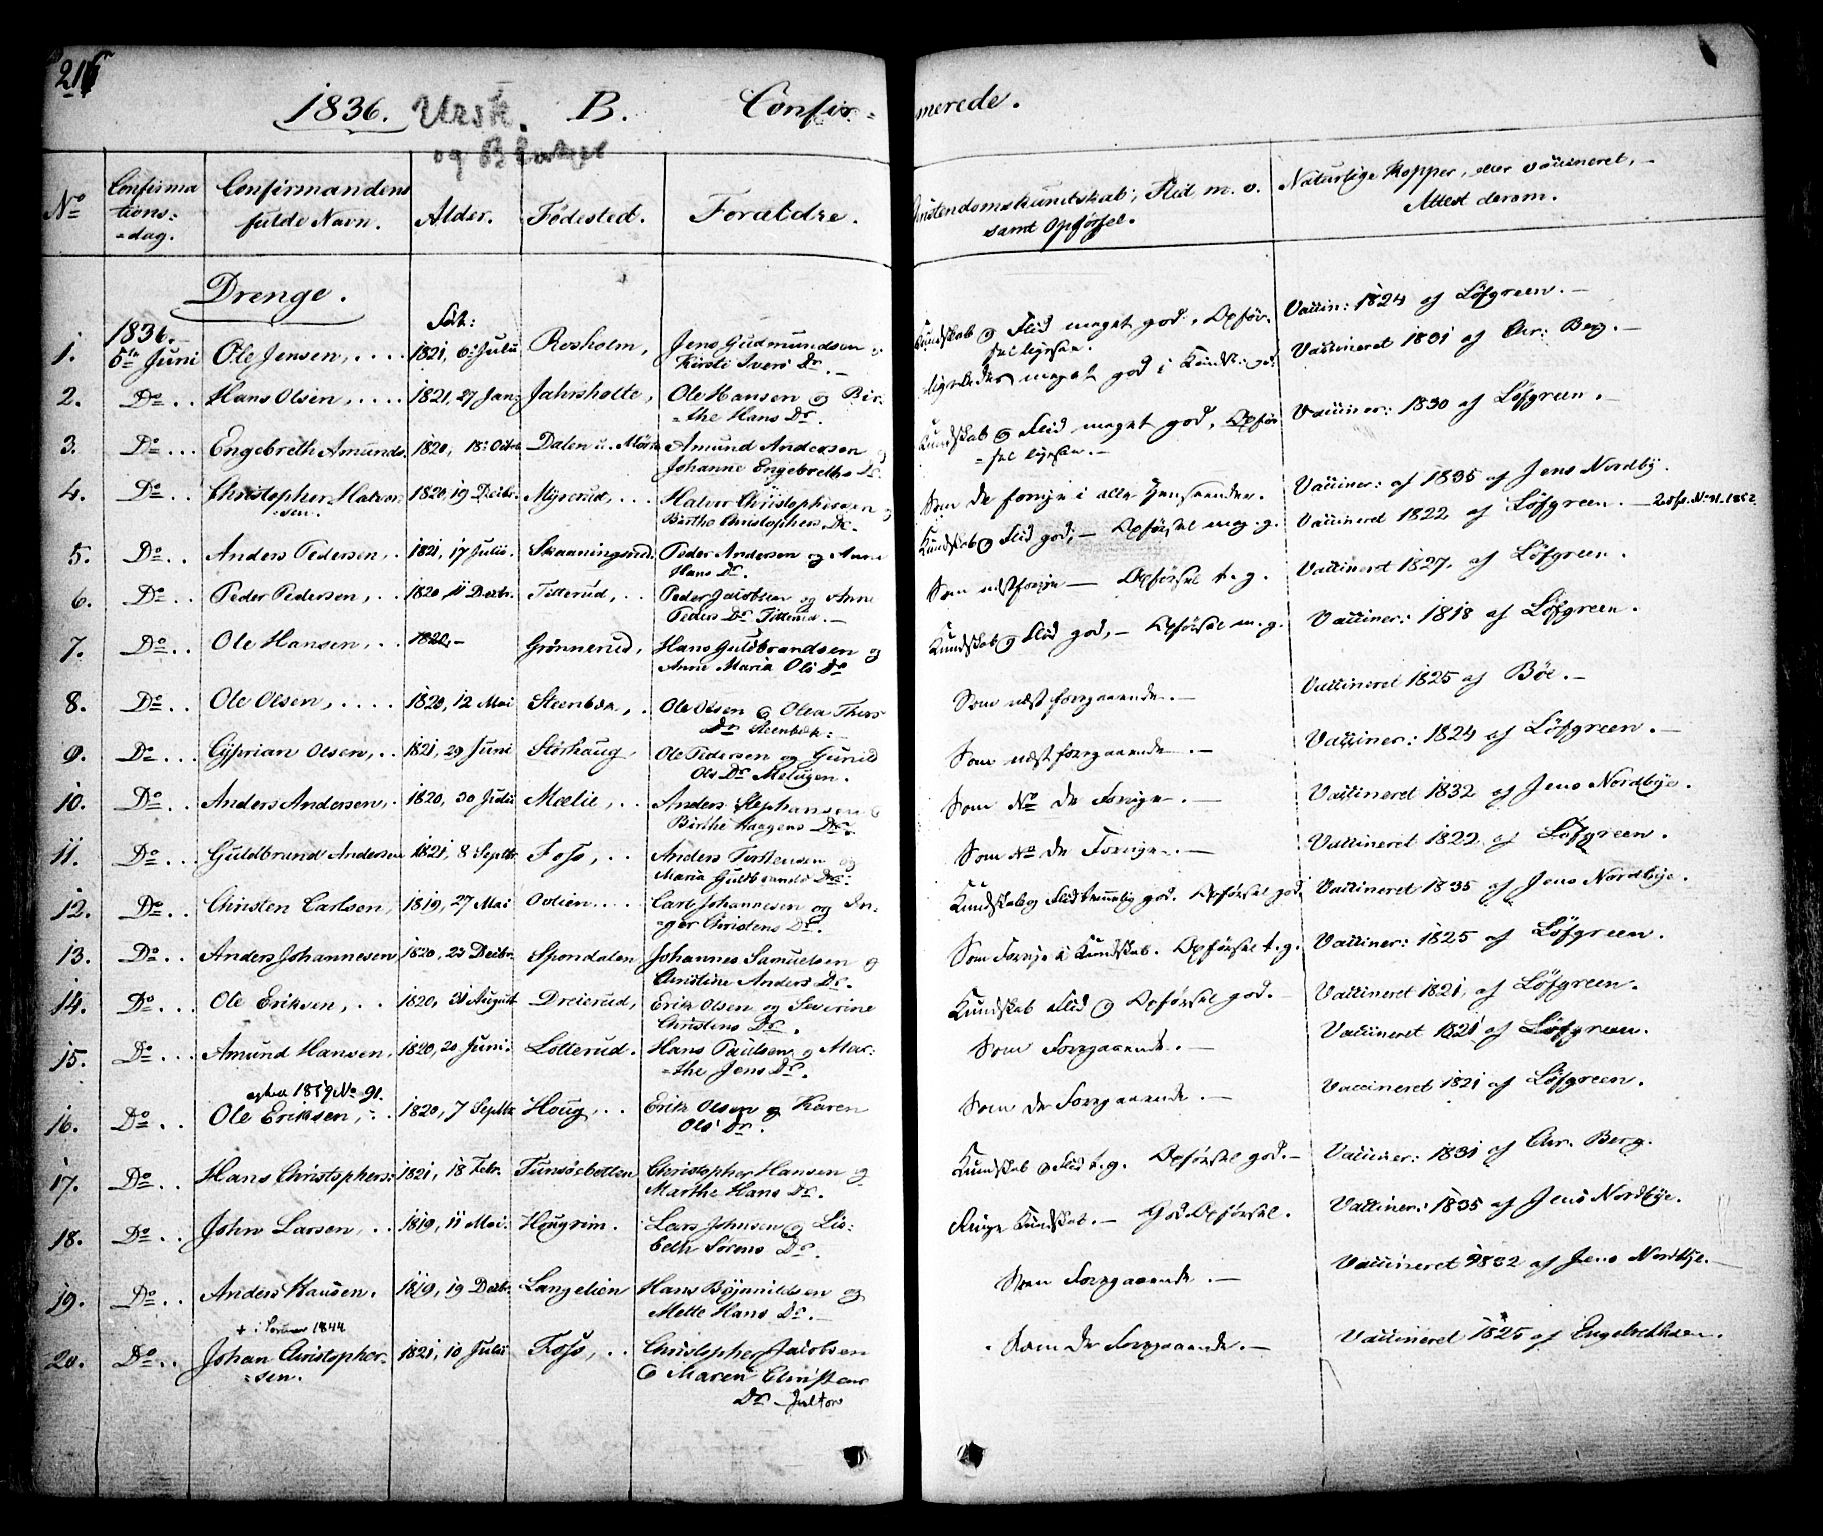 216
1836. Ursk. B. Confir= merede.
og Blakje
No Confirma tions= =dag. Confirmandens fulde Navn. Alder. Fødested. Forældre. Christendomskundskab, Flid m. v. samt Opførsel. Naturlige Kopper, eller vaccineret, — Attest derom.
Drenge.
1836. Føt:
1. 5te Juni Ole Jensen, .... 1821, 6: Julii Rosholm, Jens Gudmundsen o Kirsti Ivers Dr. — Kundskab og Flid meget god, Opfør= sel ligesaa. Vaccin: 1824 af Løfgreen. —
2. Do .. Hans Olsen, .... 1821, 27 Jan: Jahrsholte, Ole Hansen og Bir= =the Hans Dr. ligeledes meget god i Kundsk: Vaccineret 1831 af Chr: Berg. —
3. Do ... Engebreth Amunds. 1820, 18: Octbr Dalen u. Mørk Amund Andersen og Johanne Engebreths Dr Kundskab og Flid meget god, Opfør =sel ligesaa. — Vacciner: 1830 af Løfgreen. —
4. Do .. Christopher Halvor= =sen. 1820, 19 Decbr. Myrerud, ... Halvor Christophersen og Birthe Christophers Dr. Som de forrige i alle Henseender. Vacciner: af 1835 af Jens Nordby.
5. Do .. Anders Pedersen, .. 1821, 17 Julii. Skaaningsrud. Peder Andersen og Anne Hans Dr. Kundskab og Flid god, — Opførsel meg. g. Vaccineret 1822 af Løfgreen. —
6. Do .. Peder Pedersen, .. 1820, 11 Decbr. Titterud, .. Peder Jacobsen og Anne Peders Dr. Titterud. — Som næstforrige — Opførsel t. g. Vaccineret 1827, af Løfgreen.
7. Do ... Ole Hansen, .. 1820, — Grønnerud, Hans Guldbrandsen og Anne Maria Ols Dr Kundskab og Flid god, — Opførsel m. g. Vacciner: 1818 af Løfgreen.
8. Do .. Ole Olsen, .... 1820, 12 Mai Steenbæk, . Ole Olsen og Olea Thors Dr Steenbæk: Som næst foregaaende. — Vaccineret 1825 af Böe. —
9. Do .. Cyprian Olsen, .. 1821, 29 Juni Störhaug, Ole Pedersen og Gunild Ols Dr. Melvigen. Som næst foregaaende. — Vacciner: 1824 af Löfgreen. —
10. Do .. Anders Andersen, . 1820, 30 Julii Mælie, .. Anders Stephansen & Birthe Haagens Dr. Som No de Forrige. — Vaccineret 1832 af Jens Nordbye.
11. Do ... Guldbrand Andersen 1821, 8 Septbr. Foss, .. Anders Torstensen og Maria Guldbrands Dr. Som No de Forrige. — Vaccineret 1822 af Löfgreen.
12. Do ... Christen Carlsen, 1819, 27 Mai Ovlien .... Carl Johannesen og In= =ger Christens Dr. Kundskab og Flid temmelig god. Opførsel god. Vaccineret 1835 af Jens Nordbye.
13. Do .. Anders Johannesen 1820, 23 Decbr. Spondalen Johannes Samuelsen og Christine Anders Dr. Som Forrige i Kundskab. Opførsel t. g. Vacciner: 1825 af Löfgreen.
14. Do ... Ole Eriksen, .. 1820, 31 August Dreierud, Erik Olsen og Severine Christens Dr. Kundskab Flid og Opførsel god. — Vaccineret 1821, af Löfgreen.
15. Do ... Amund Hansen, 1820, 20 Juni: Lotterud. Hans Paulsen og Mar= =the Jens Dr. Som Foregaaende. — Vaccineret 1821 af Löfgreen.
16. Do .. Ole Eriksen, .. 1820, 7 Septbr Houg, .. Erik Olsen og Karen Ols Dr. Som de Foregaaende. — Vaccineret 1821 af Löfgreen.
17. Do .. Hans Christophers: 1821, 18 Febr. Tunsöebotten Christopher Hansen og Marthe Hans Dr. Kundskab og Flid t. g. Opførsel god. — Vacciner: 1831 af Chr. Berg.
18. Do .. John Larsen, .. 1819, 11 Mai. Hougrim. Lars Johnsen og Lis= beth Sörens Dr. Ringe Kundskab. — God Opførsel. Vacciner: 1835 af Jens Nordbye.
19. Do .. Anders Hansen. 1819, 19 Decbr. Langelien Hans Böjnildsen og Mette Hans Dr. — Som Foregaaende. — Vaccineret 1832 af Jens Nordbye. —
+ i 1844
20. Do .. Johan Christopher= =sen. 1821, 10 Julii Foss, .. Christopher Jacobsen & Maren Christens Dr. Som de Foregaaende. — Vaccineret 1825 af Engebrethsen.